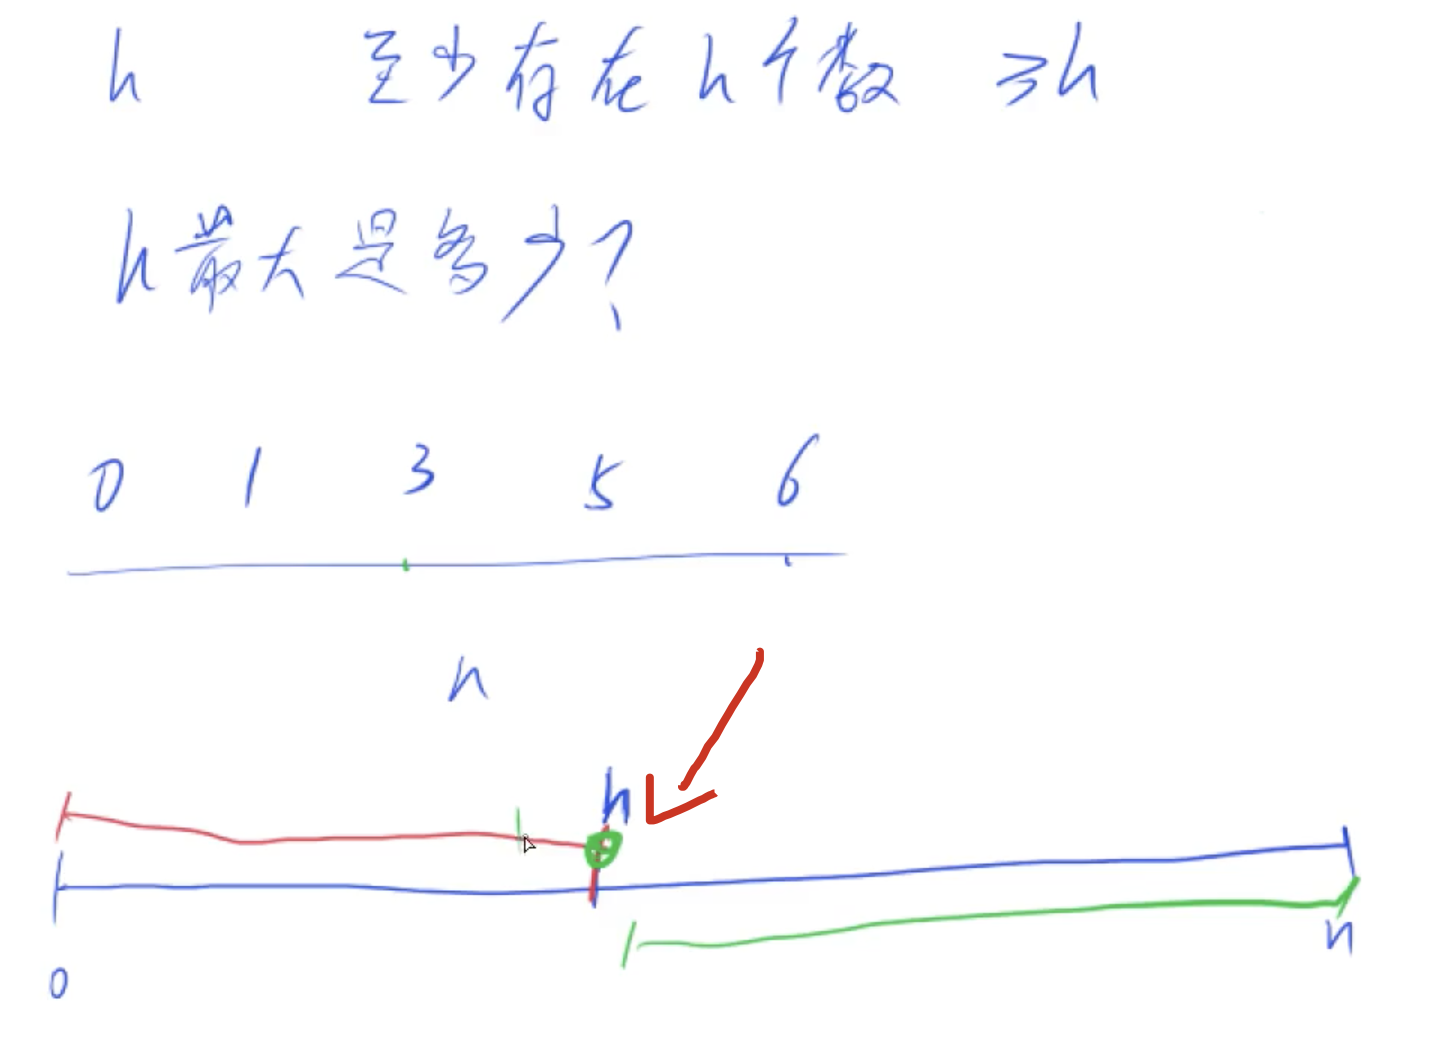 h 至少存在h个数 ≥h
h最大是多少?
0 1 3 5 6
n
h
n
0